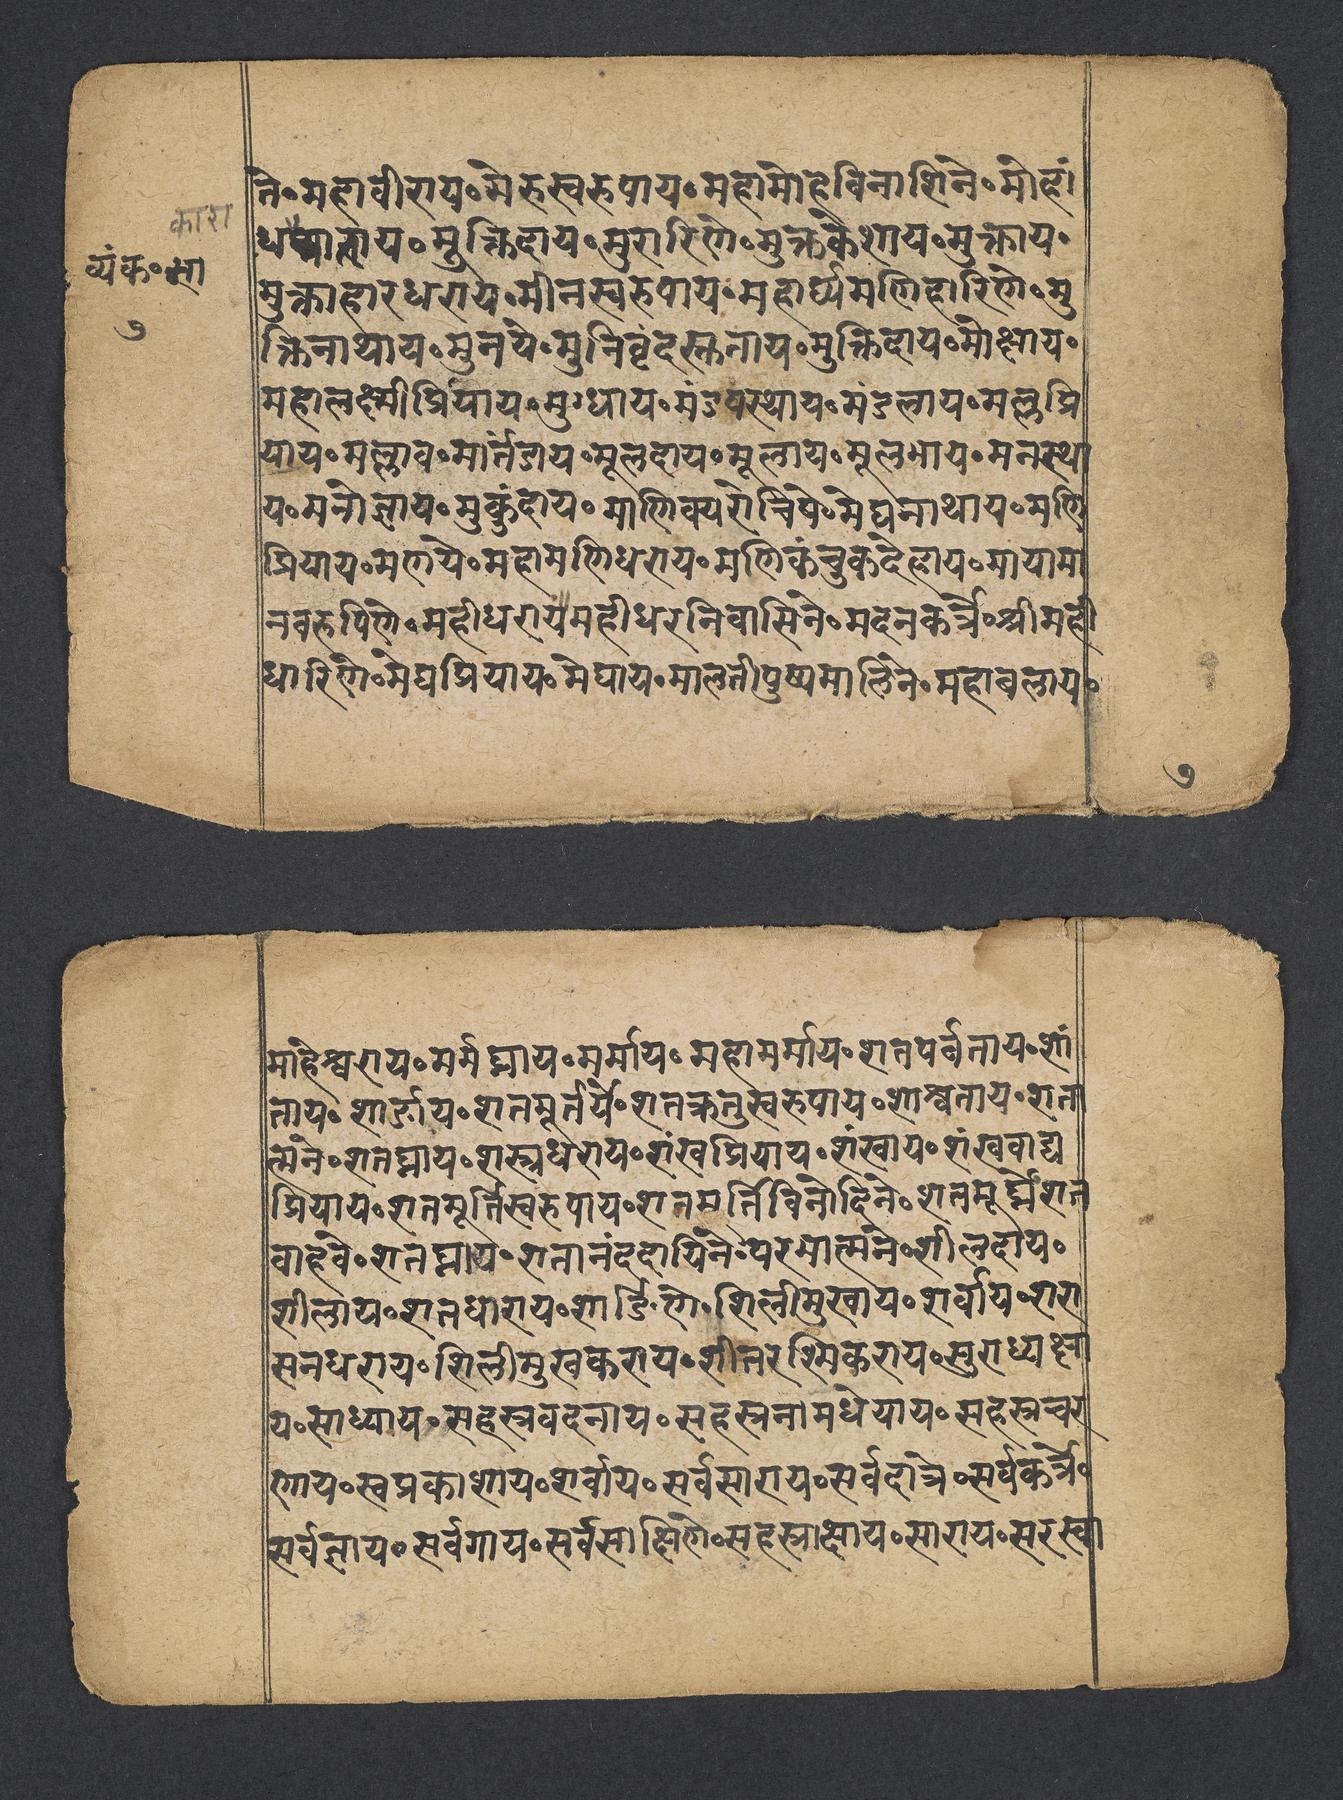 ते॰महावीराय॰मेरुस्वरुपाय॰महामोहविनाशिने॰मोहां
कारा
मुक्तिदाय॰मुरारिणे॰मुक्तकेशाय॰मुक्ताय॰
व्यंक॰
मुक्ताहारधराय॰मीनस्वरुपाय॰महार्घ्यमणिहारिणे॰मु
७
क्तिनाथाय॰मुनये॰मुनिवृंदस्तुताय॰मुक्तिदाय॰मोक्षाय॰
महालक्ष्मीप्रियाय॰मुग्धाय॰मंडपस्थाय॰मंडलाय॰मल्लप्रि
याय॰मल्लाय॰मार्तंडाय॰मूलदाय॰मूलाय॰मूलभाय॰मनस्था
य॰मनोज्ञाय॰मुकुंदाय॰माणिक्यरोचिषे॰मेघनाथाय॰मणि
प्रियाय॰मणये॰महामणिधराय॰मणिकंचुकदेहाय॰मायामा
नवरुपिणे॰महीधराय॰महीधरनिवासिने॰मदनकर्त्रे॰श्रीमही
धारिणे॰मेघप्रियाय॰मेघाय॰मालतीपुष्पमालिने॰महाबलाय॰
७
माहेश्वराय॰मर्मघ्नाय॰मर्माय॰महामर्माय॰शतपर्वताय॰शां
ताय॰शार्ङ्गाय॰शतमूर्तये॰शतक्रतुस्वरुपाय॰शाश्वताय॰शता
त्मने॰शतघ्नाय॰शस्त्रधराय॰शंखप्रियाय॰शंखाय॰शंखवाद्य
प्रियाय॰शतमूर्त्तिस्वरुपाय॰शतमूर्त्तिविनोदिने॰शतमूर्ध्ने॰शत
बाहवे॰शतघ्नाय॰शतानंददायिने॰परमात्मने॰शीलदाय॰
शीलाय॰शतधाराय॰शार्ङ्गिणे॰शिलीमुखाय॰शर्वाय॰शरा
सनधराय॰शिलीमुखकराय॰शीतरश्मिकराय॰सुराध्यक्षा
य॰साध्याय॰सहस्रवदनाय॰सहस्रनामधेयाय॰सहस्रचर
णाय॰स्वप्रकाशाय॰शर्वाय॰सर्वसाराय॰सर्वदात्रे॰सर्वकर्त्रे॰
सर्वज्ञाय॰सर्वगाय॰सर्वसाक्षिणे॰सहस्राक्षाय॰साराय॰सरस्वा